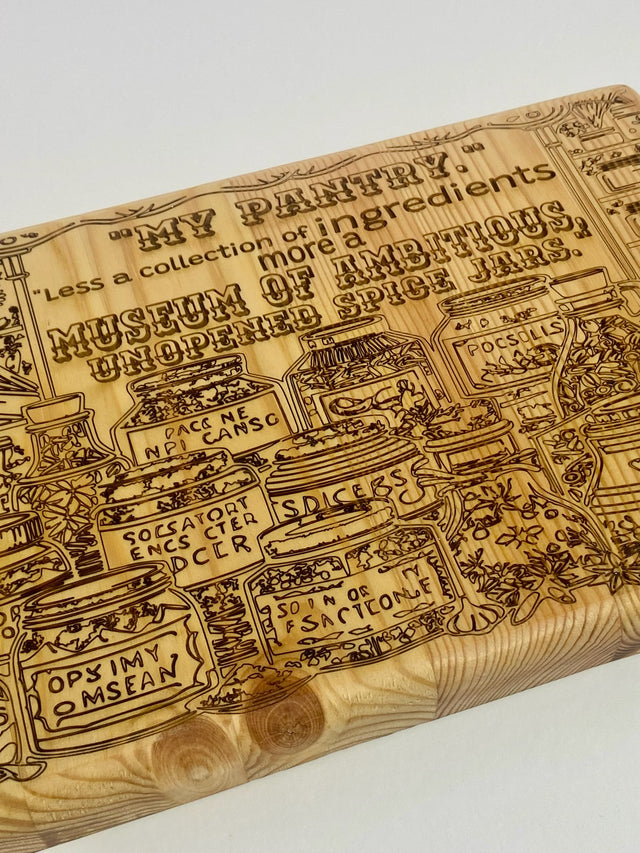 "MY PANTRY."
"Less a collection of ingredients
more a
MUSEUM OF AMBITIOUS,
UNOPENED SPICE JARS.
POCSDLLS
PACC NE
NPP CANSO
SPICE
SOESATORT
ENCS CTER
DCCR
SO IN OR
ESACTEONE
OPSIMY
OMSEAN